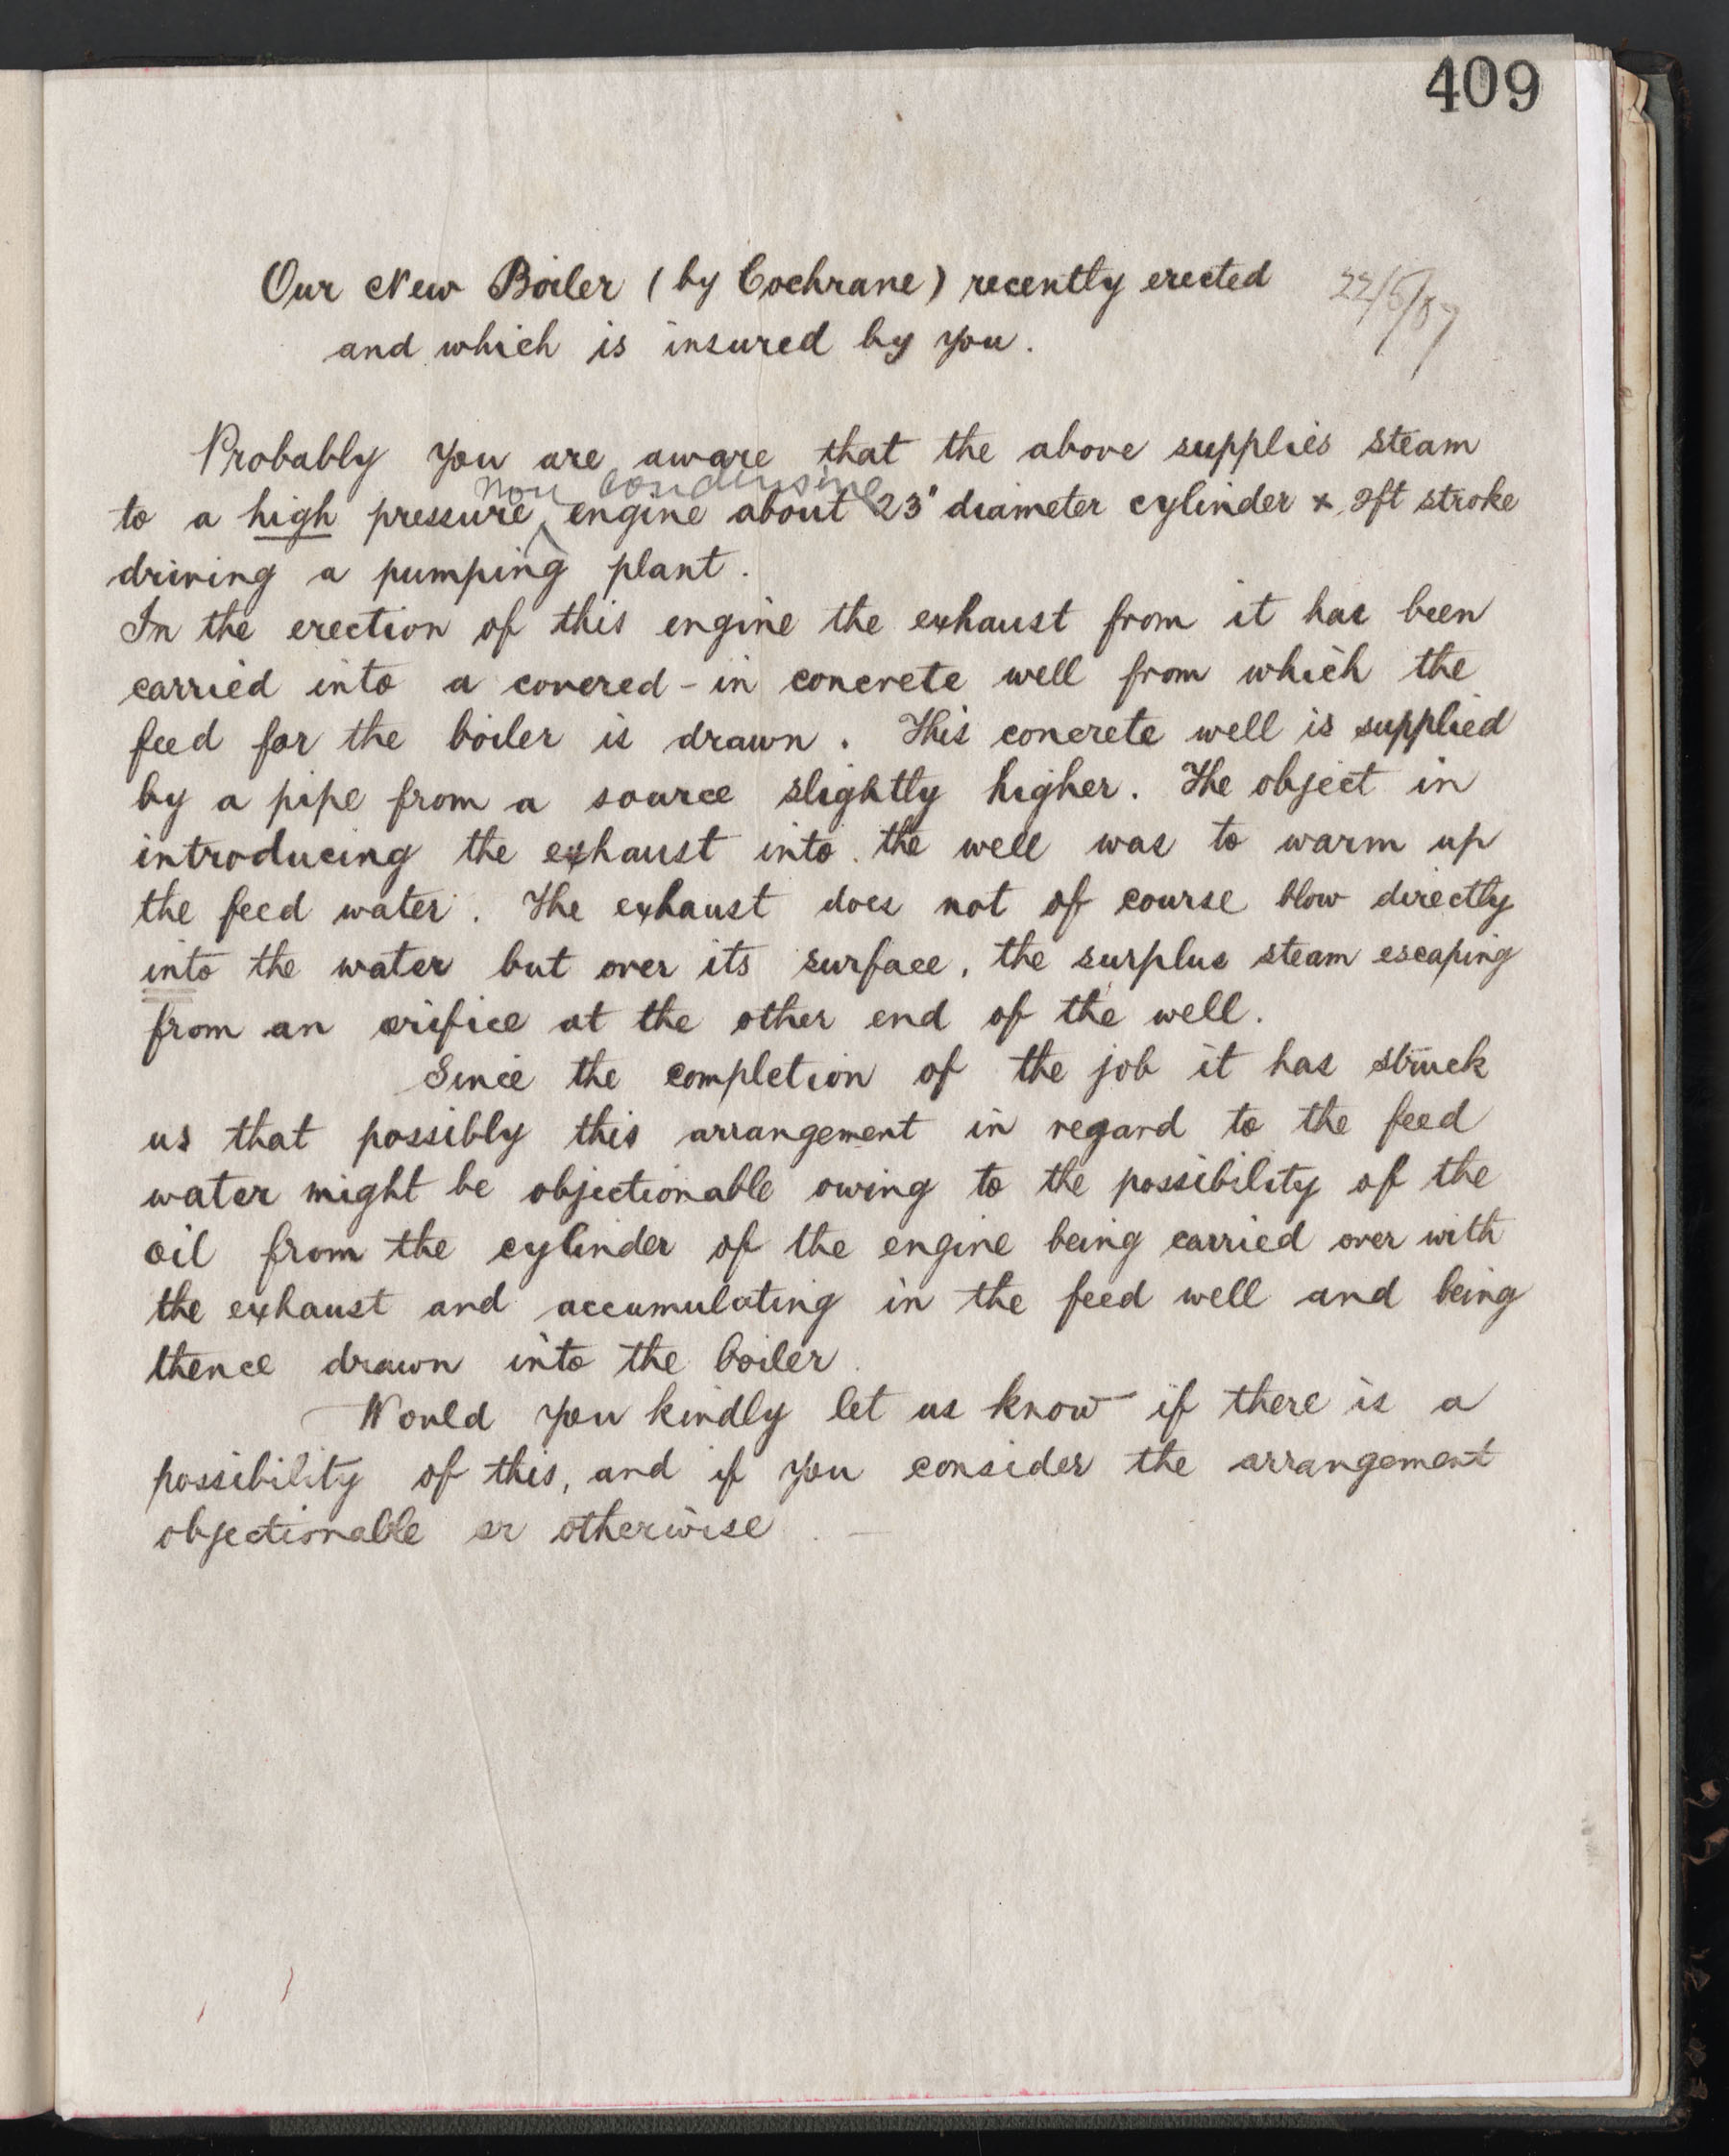 409
Our New Boiler (by Cochrane) recently erected
22/5/87
and which is insured by you.
Probably you are aware that the above supplies steam
non condensing
to a high pressure ^ engine about 23" diameter cylinder x 2ft stroke
driving a pumping plant.
In the erection of this engine the exhaust from it has been
carried into a covered-in concrete well from which the
feed for the boiler is drawn. This concrete well is supplied
by a pipe from a source slightly higher. The object in
introducing the exhaust into the well was to warm up
the feed water. The exhaust does not of course blow directly
into the water but over its surface, the surplus steam escaping
from an orifice at the other end of the well.
Since the completion of the job it has struck
us that possibly this arrangement in regard to the feed
water might be objectionable owing to the possibility of the
oil from the cylinder of the engine being carried over with
the exhaust and accumulating in the feed well and being
thence drawn into the boiler.
Would you kindly let us know if there is a
possibility of this, and if you consider the arrangement
objectionable or otherwise. —